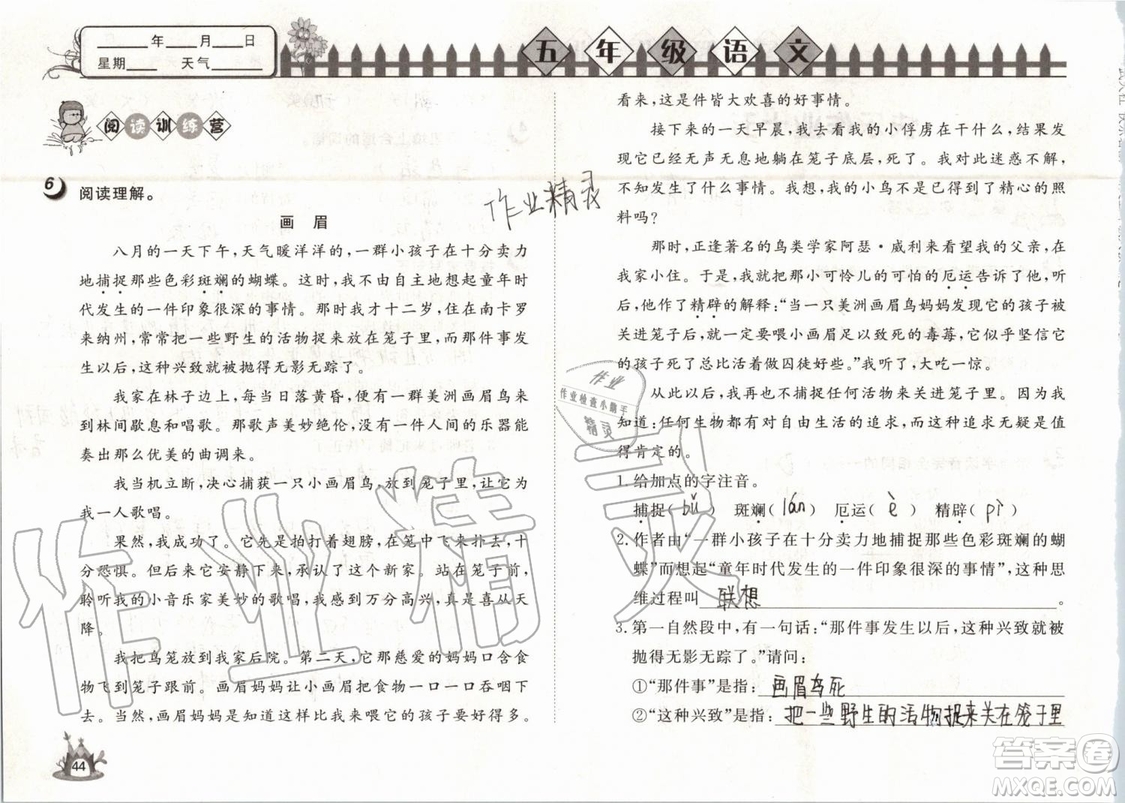 ____年____月____日
星期____ 天气____
五年级语文
阅读训练营
6 阅读理解。
画 眉
八月的一天下午，天气暖洋洋的，一群小孩子在十分卖力
地捕捉那些色彩斑斓的蝴蝶。这时，我不由自主地想起童年时
代发生的一件印象很深的事情。那时我才十二岁，住在南卡罗
来纳州，常常把一些野生的活物捉来放在笼子里，而那件事发生
以后，这种兴致就被抛得无影无踪了。
我家在林子边上，每当日落黄昏，便有一群美洲画眉鸟来
到林间歇息和唱歌。那歌声美妙绝伦，没有一件人间的乐器能
奏出那么优美的曲调来。
我当机立断，决心捕获一只小画眉，放到笼子里，让它为我
一人歌唱。
果然，我成功了。它先是拍打着翅膀，在笼中飞来扑去，十
分恐惧。但后来它安静下来，承认了这个新家。站在笼子前，
聆听我的小音乐家美妙的歌唱，我感到万分高兴，真是喜从天
降。
我把鸟笼放到我家后院。第二天，它那慈爱的妈妈口含食
物飞到笼子跟前。画眉妈妈让小画眉把食物一口一口吞咽下
去。当然，画眉妈妈是知道这样比我来喂它的孩子要好得多。
看来，这是件皆大欢喜的好事情。
接下来的一天早晨，我去看我的小俘虏在干什么，结果发
现它已经无声无息地躺在笼子底层，死了。我对此迷惑不解，
不知发生了什么事情。我想，我的小鸟不是已得到了精心的照
料吗？
那时，正逢著名的鸟类学家阿瑟·威利来看望我的父亲，在
我家小住。于是，我就把那小可怜儿的可怕的厄运告诉了他，听
后，他作了精辟的解释：“当一只美洲画眉鸟妈妈发现它的孩子被
关进笼子后，就一定要喂小画眉足以致死的毒莓，它似乎坚信它
的孩子死了总比活着做囚徒好些。”我听了，大吃一惊。
从此以后，我再也不捕捉任何活物来关进笼子里。因为我
知道：任何生物都有对自由生活的追求，而这种追求无疑是值
得肯定的。
1. 给加点的字注音。
捕捉（bǔ） 斑斓（lán） 厄运（è） 精辟（pì）
2. 作者由“一群小孩子在十分卖力地捕捉那些色彩斑斓的蝴
蝶”而想起“童年时代发生的一件印象很深的事情”，这种思
维过程叫 联想 。
3. 第一自然段中，有一句话：“那件事发生以后，这种兴致就被
抛得无影无踪了。”请问：
①“那件事”是指：画眉鸟死
②“这种兴致”是指：把一些野生的活物捉来关在笼子里
44
作业精灵
作业
作业检查小助手
精灵
作业精灵
答案圈
MXQE.COM